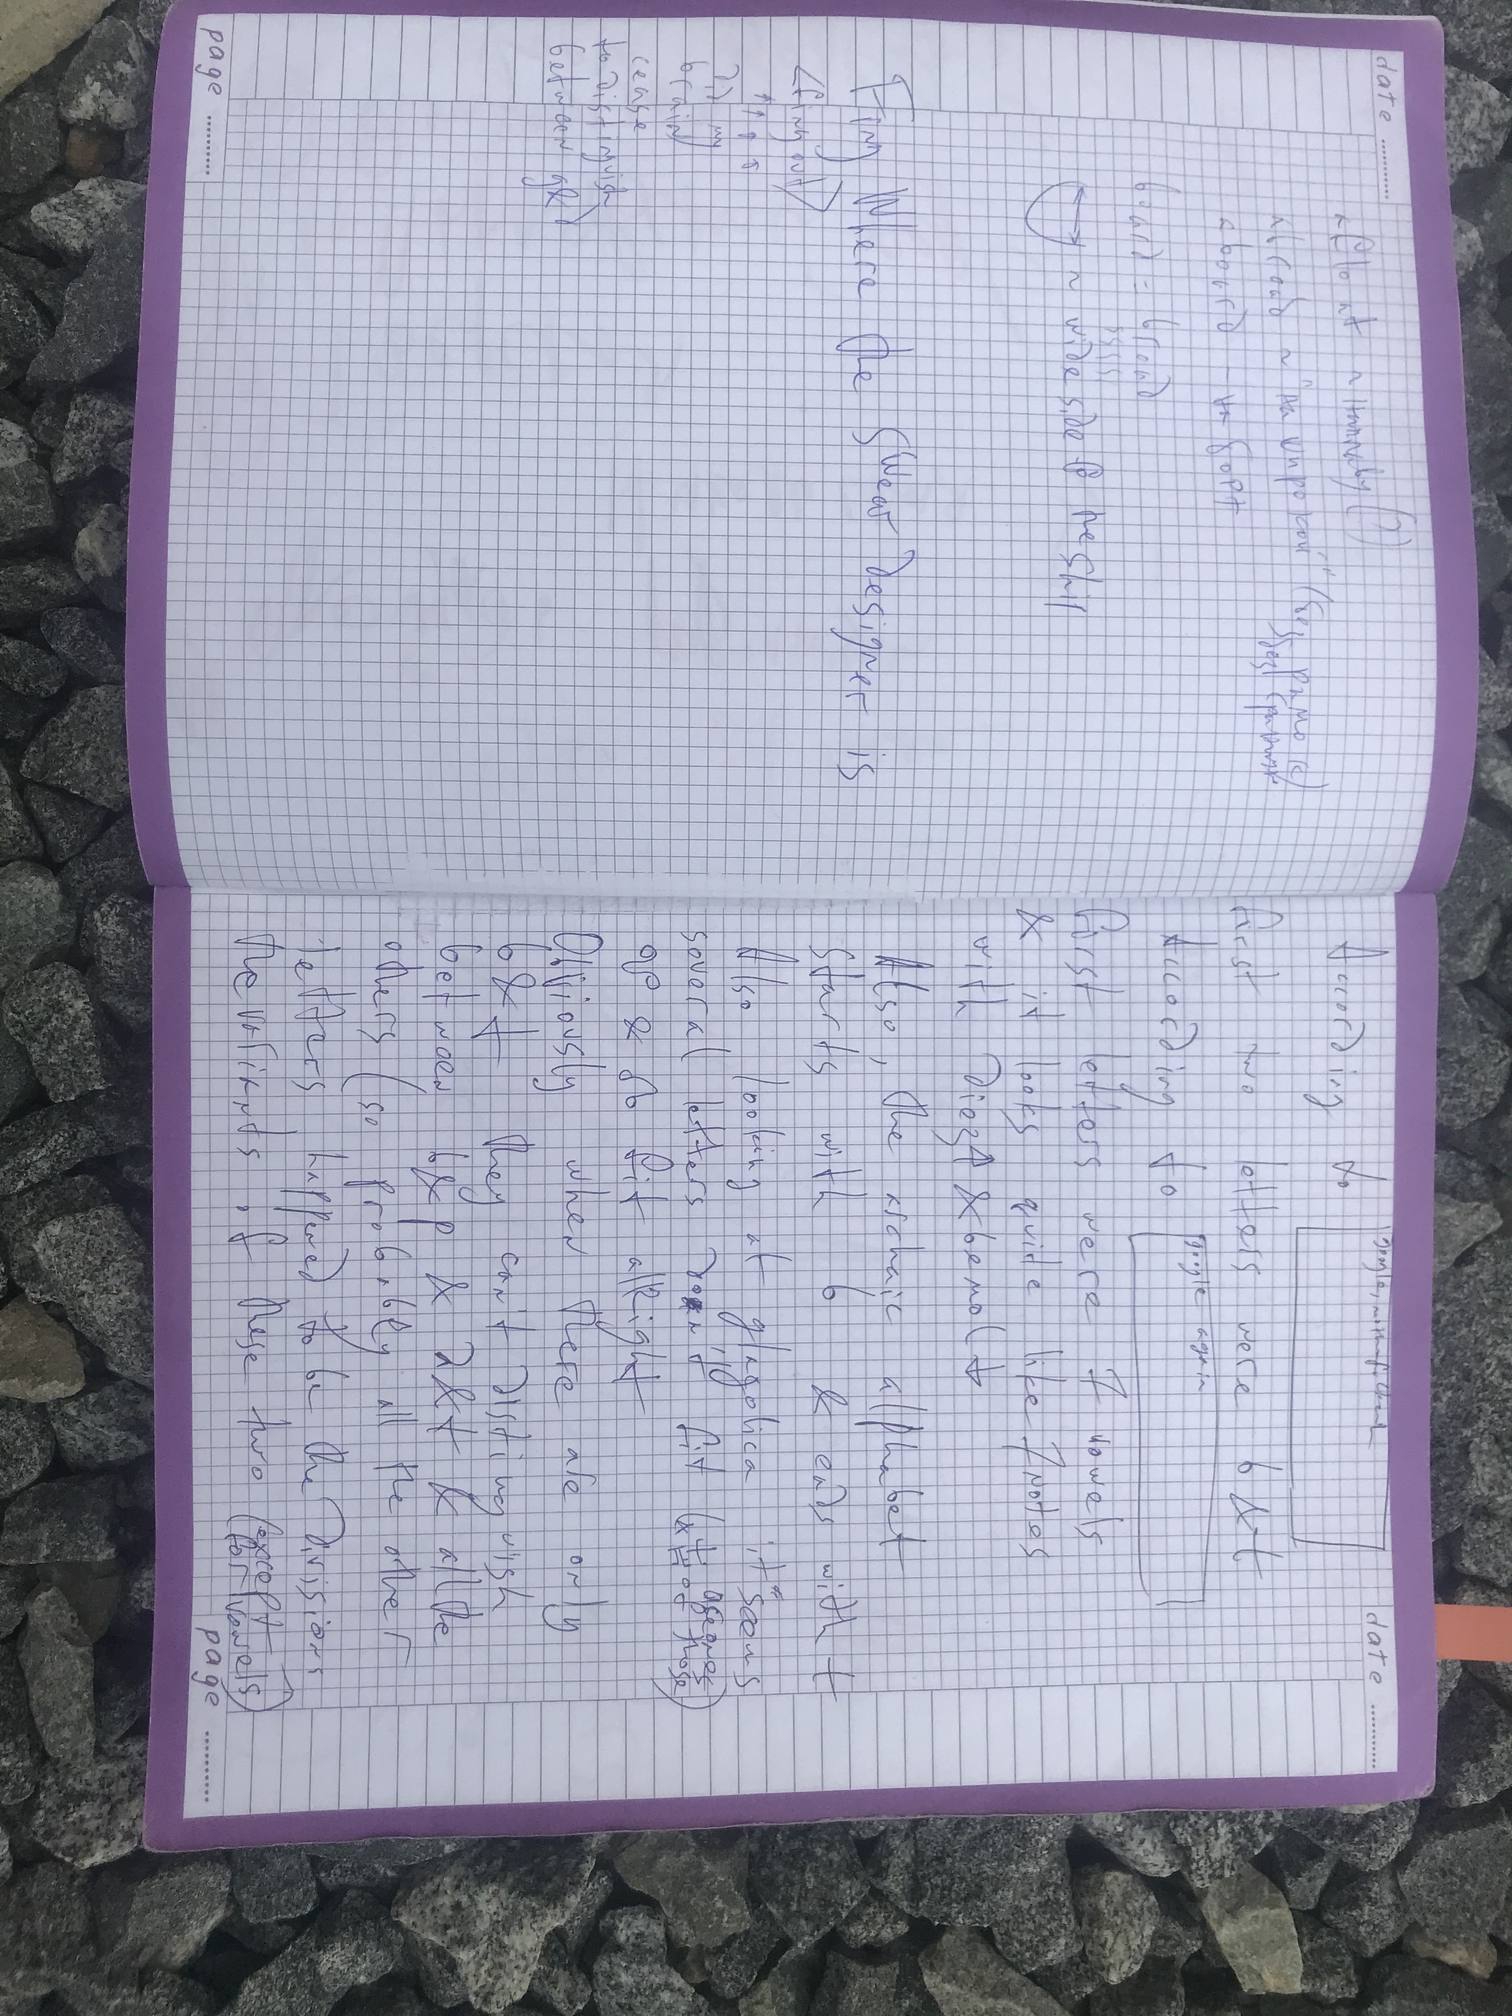 date ..........
afloat ~ наплаву (?)
abroad ~ "на
aboard - на борт
board = broad
~ wide side of the ship
Find Where the swear designer is
<find out>
Did my
brain
cease
to distinguish
between g&d
page ..........
date ..........
According to
first two letters were b & t
According to
google again
first letters were 7 vowels
& it looks quite like 7 notes
with diez↑ & bemol↓
Also, the archaic alphabet
starts with b & ends with t
Also looking at glagolica it* seems
several letters don't fit
& do fit allright
Obviously when there are only
b & t they can't distinguish
between b&p & d&t & all the
others (so probably all the other
letters happened to be the divisions
the variants of these two (except
for vowels)
page ..........